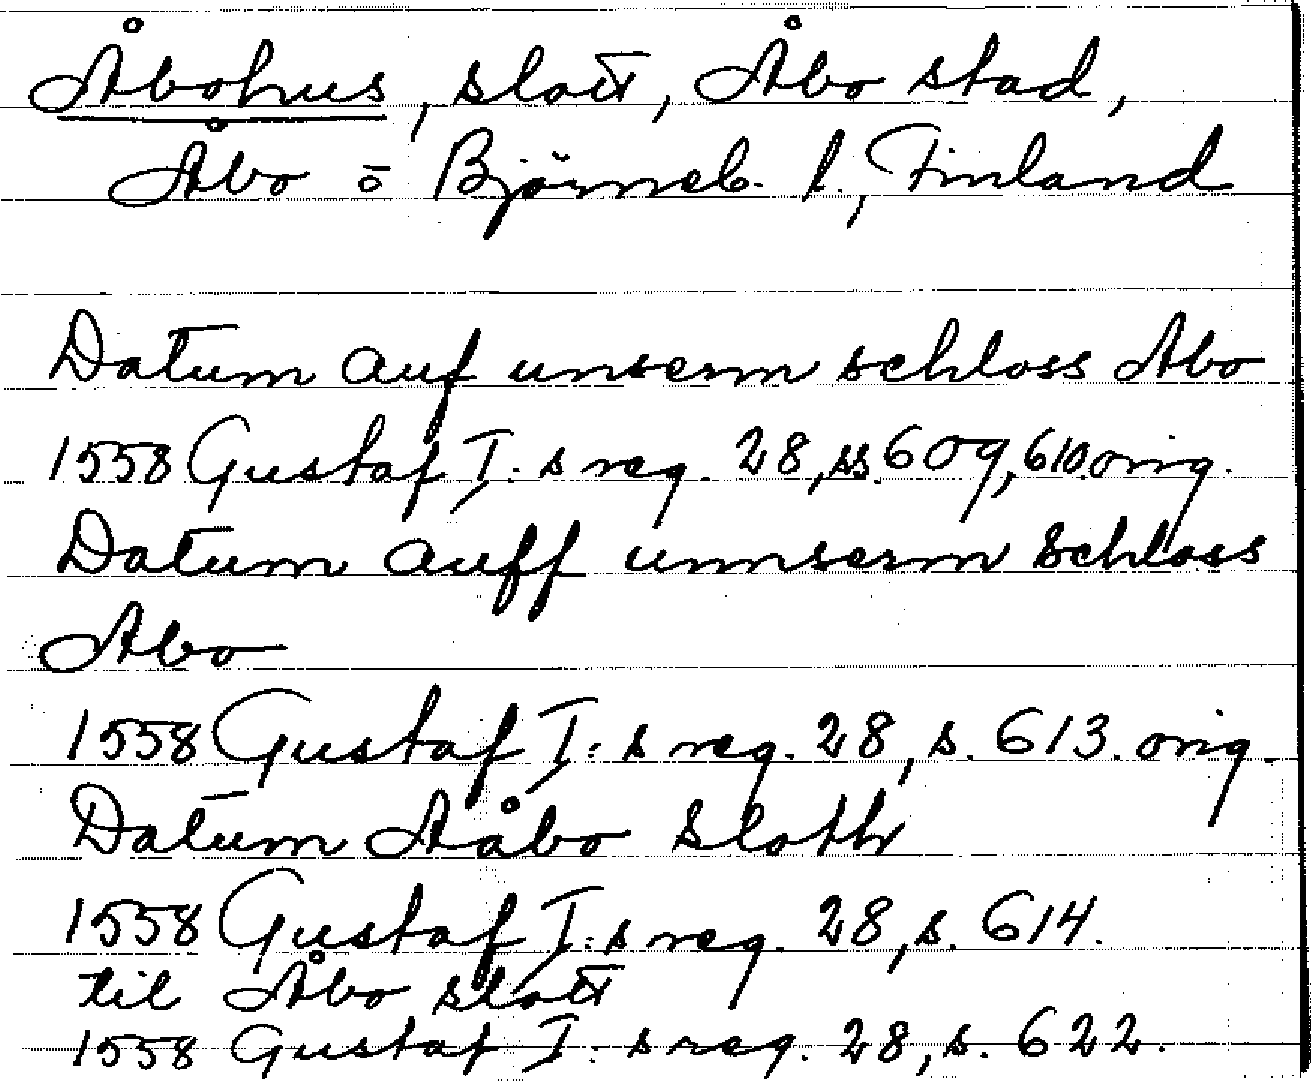 Åbohus, slott, Åbo stad,
Åbo o Björneb. l., Finland
Datum auf unserm schloss Abo
1558 Gustaf I:s reg. 28, ss. 609, 610. orig.
Datum auff unnserm Schloss
Abo
1558 Gustaf I:s reg. 28, s. 613. orig.
Datum Aåbo Sloth
1558 Gustaf I:s reg. 28, s. 614.
til Åbo slott
1558 Gustaf I:s reg. 28, s. 622.